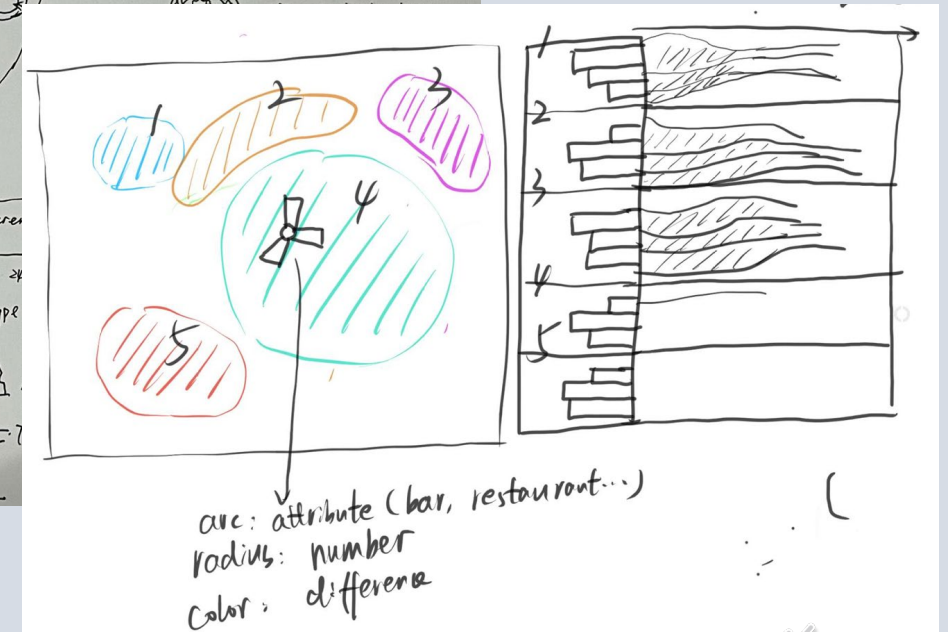 1
2
3
4
5
1
2
3
4
5
arc: attribute (bar, restaurant...)
radius: number
color: difference
(